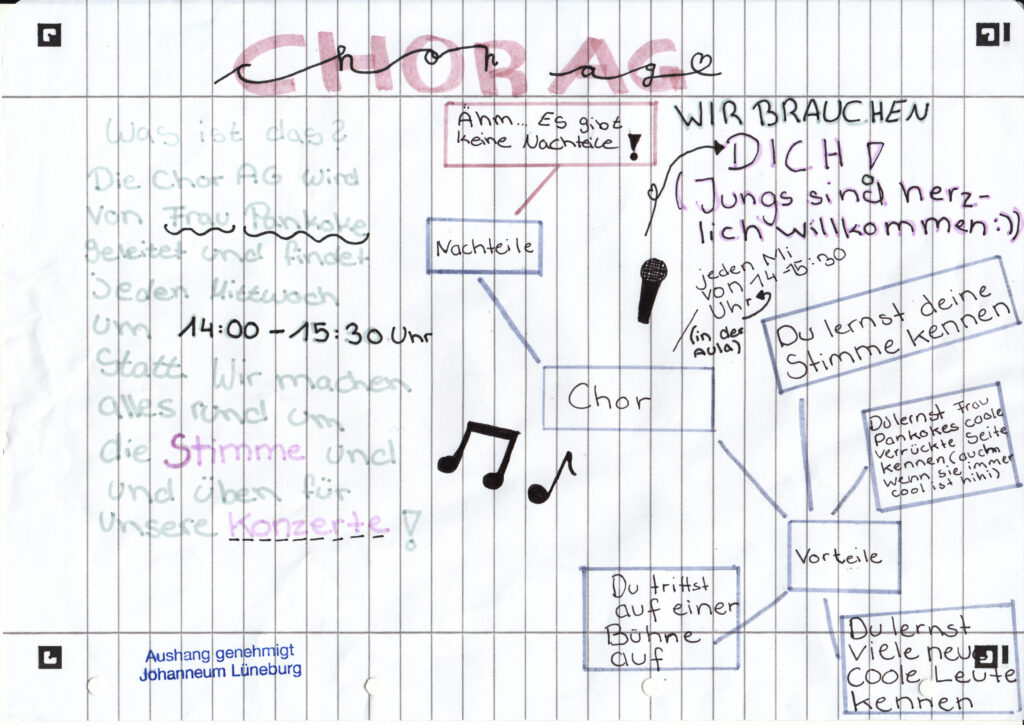 CHOR AG
Chor ag
Was ist das?
Die Chor AG wird
von Frau Pankoke
geleitet und findet
jeden Mittwoch
um 14:00 - 15:30 Uhr
statt. Wir machen
alles rund um
die Stimme und
und üben für
unsere Konzerte!
Ähm... Es gibt
keine Nachteile!
Nachteile
Chor
WIR BRAUCHEN
DICH!
(Jungs sind herz-
lich willkommen:))
jeden Mi
von 14-15:30
Uhr
(in der
Aula)
Du lernst deine
Stimme kennen
Du lernst Frau
Pankokes coole
verrückte Seite
kennen (auch
wenn sie immer
cool ist hihi)
Vorteile
Du trittst
auf einer
Bühne
auf
Du lernst
viele neue
coole Leute
kennen
Aushang genehmigt
Johanneum Lüneburg